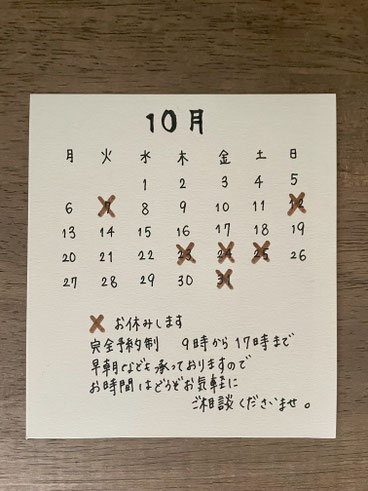 10月
月 火 水 木 金 土 日
1 2 3 4 5
6 7 8 9 10 11 12
13 14 15 16 17 18 19
20 21 22 23 24 25 26
27 28 29 30 31
X お休みします
完全予約制 9時から17時まで
早朝なども承っておりますので
お時間はどうぞお気軽に
ご相談くださいませ。